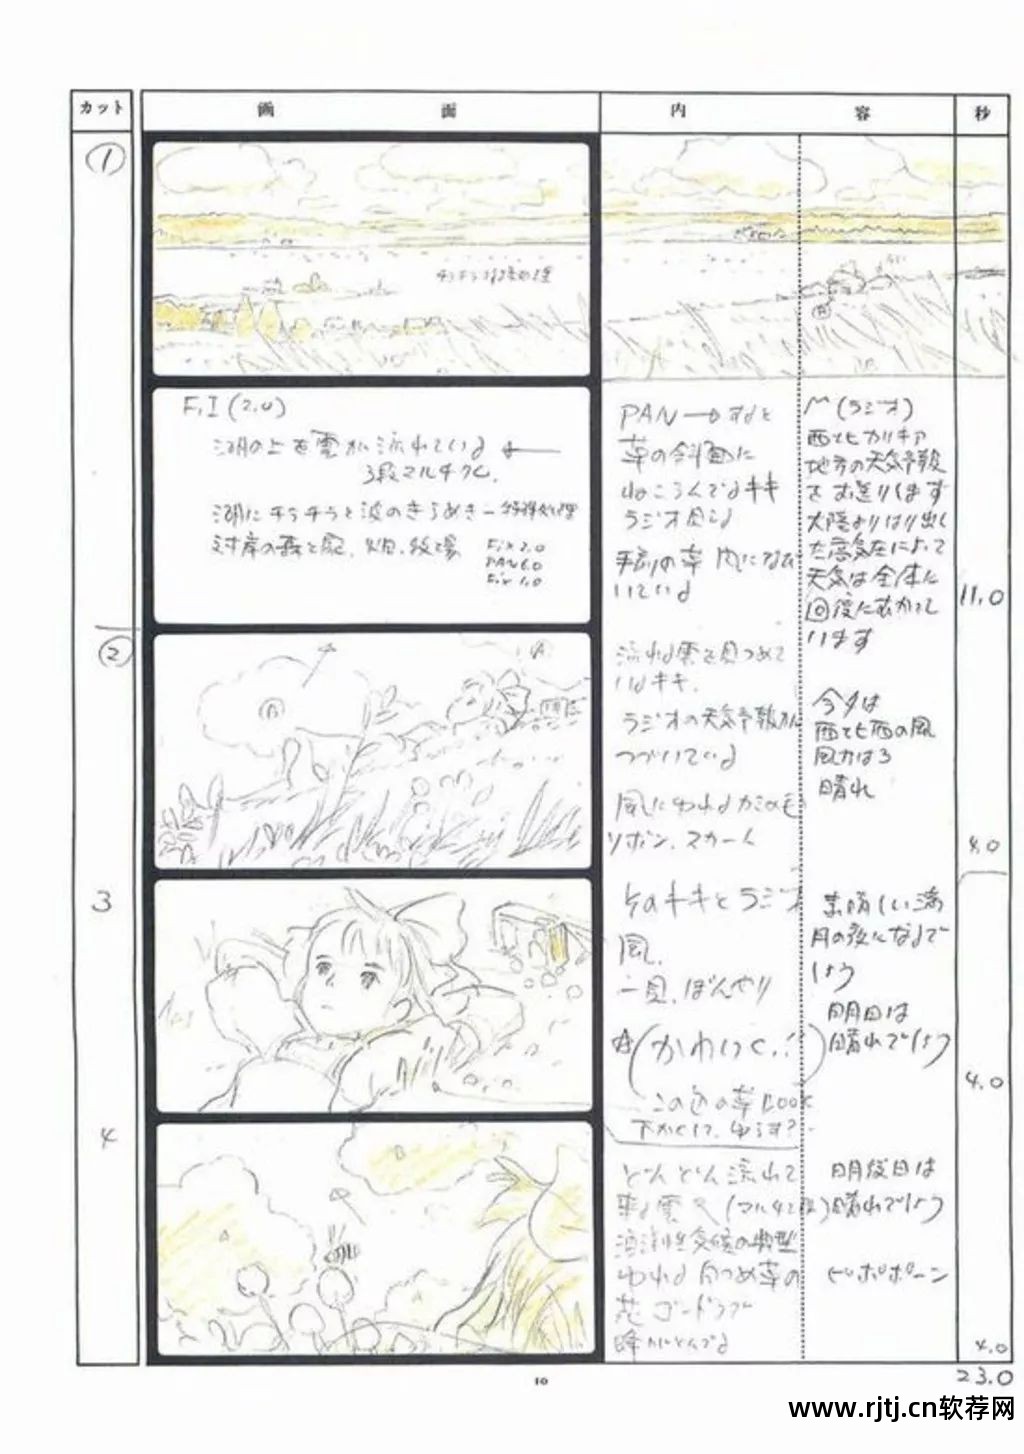 カット
画面
内容
秒
①
チラチラ
F.I (2.0)
湖の上を雲が流れている
3段マルチクミ.
湖にチラチラと波のきらめき－特殊処理
対岸の森と
Fix 2.0
PAN 6.0
Fix 3.0
PAN→すると
草の斜面に
ねころんでるキキ
ラジオ
手前の草 風になび
いている
(ラジオ)
西北カリキア
地方の天気予報
をお送りします
大陸よりはり出し
た高気圧によって
天気は全体に
回復にむかって
います
11.0
②
A
B
流れる雲を見つめて
いるキキ.
ラジオの天気予報が
つづいている
風にゆれるカミの毛
リボン、スカート
今夕は
西北西の風
風力は3
晴れ
4.0
3
キキとラジオ
風.
ぼんやり
(かわいく..!)
この色の草BOOK
素晴しい満
月の夜になるで
しょう
明日は
晴れでしょう
4.0
4
B
A
A
どんどん流れて
来る雲
ゆれる
花
とんでる
明後日は
晴れでしょう
ピポポーン
4.0
10
23.0
www.rjtj.cn软荐网